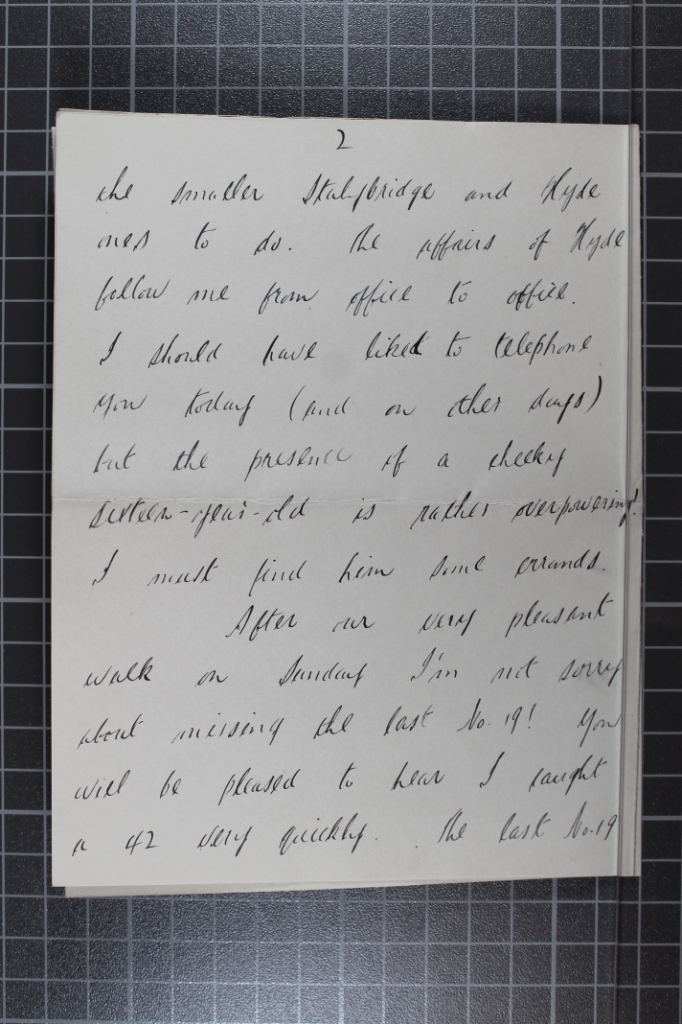 2
the smaller Stalybridge and Hyde
ones to do. The affairs of Hyde
follow me from office to office.
I should have liked to telephone
you today (and on other days)
but the presence of a cheeky
sixteen-year-old is rather overpowering!
I must find him some errands.
After our very pleasant
walk on Sunday I'm not sorry
about missing the last No. 19! You
will be pleased to hear I caught
a 42 very quickly. The last No. 19